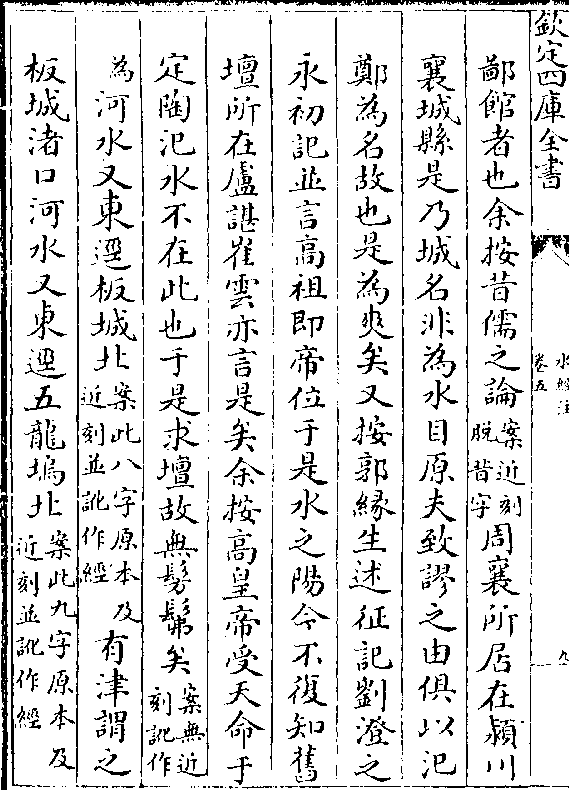 欽定四庫全書
水經注
卷五
九
鄙館者也余按昔儒之論案近刻脱昔字周襄所居在潁川
襄城縣是乃城名非為水目原夫致謬之由俱以汜
鄭為名故也是為爽矣又按郭緣生述征記劉澄之
永初記並言高祖即帝位于是水之陽今不復知舊
壇所在盧諶崔雲亦言是矣余按高皇帝受天命于
定陶汜水不在此也于是求壇故無髣髴矣案無近刻訛作
為河水又東逕板城北案此八字原本及近刻並訛作經有津謂之
板城渚口河水又東逕五龍塢北案此九字原本及近刻並訛作經